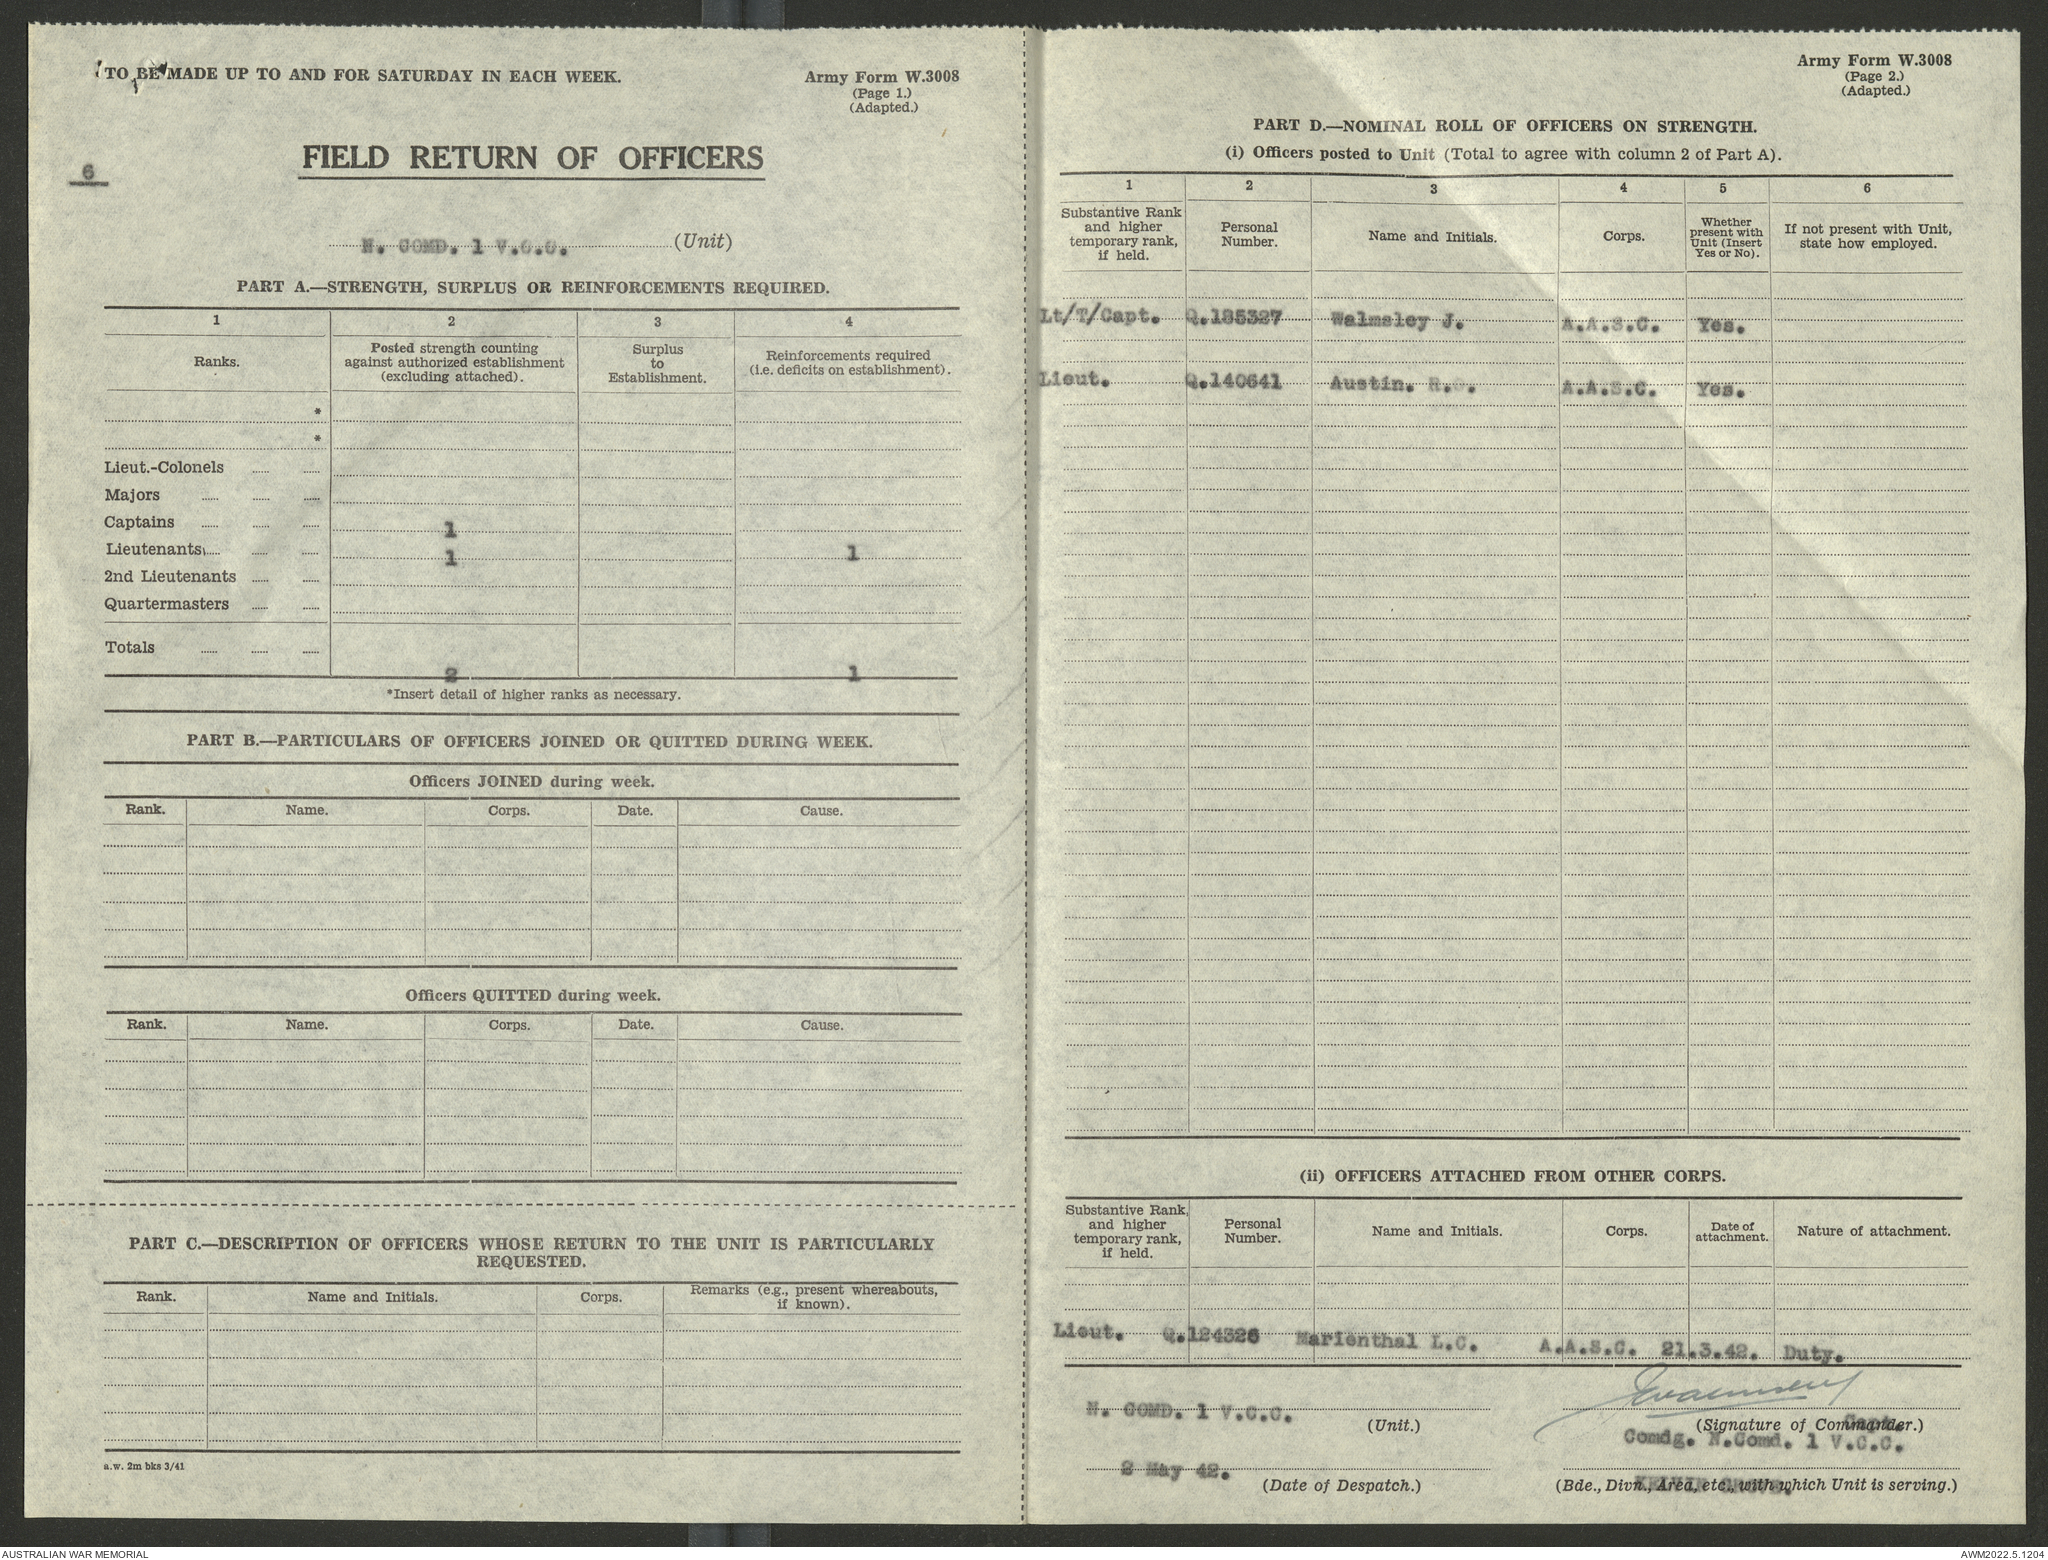 TO BE MADE UP TO AND FOR SATURDAY IN EACH WEEK.
Army Form W.3008
(Page 1.)
(Adapted.)
FIELD RETURN OF OFFICERS
6
N. COMD. 1 V.C.C. (Unit)
PART A.—STRENGTH, SURPLUS OR REINFORCEMENTS REQUIRED.
1 2 3 4
Ranks. Posted strength counting against authorized establishment (excluding attached). Surplus to Establishment. Reinforcements required (i.e. deficits on establishment).
*
*
Lieut.-Colonels
Majors
Captains 1
Lieutenants 1 1
2nd Lieutenants
Quartermasters
Totals
2 1
*Insert detail of higher ranks as necessary.
PART B.—PARTICULARS OF OFFICERS JOINED OR QUITTED DURING WEEK.
Officers JOINED during week.
Rank. Name. Corps. Date. Cause.
Officers QUITTED during week.
Rank. Name. Corps. Date. Cause.
PART C.—DESCRIPTION OF OFFICERS WHOSE RETURN TO THE UNIT IS PARTICULARLY
REQUESTED.
Rank. Name and Initials. Corps. Remarks (e.g., present whereabouts, if known).
a.w. 2m bks 3/41
Army Form W.3008
(Page 2.)
(Adapted.)
PART D.—NOMINAL ROLL OF OFFICERS ON STRENGTH.
(i) Officers posted to Unit (Total to agree with column 2 of Part A).
1 2 3 4 5 6
Substantive Rank and higher temporary rank, if held. Personal Number. Name and Initials. Corps. Whether present with Unit (Insert Yes or No). If not present with Unit, state how employed.
Lt/T/Capt. Q.185327 Walmsley J. A.A.S.C. Yes.
Lieut. Q.140641 Austin. R.G. A.A.S.C. Yes.
(ii) OFFICERS ATTACHED FROM OTHER CORPS.
Substantive Rank, and higher temporary rank, if held. Personal Number. Name and Initials. Corps. Date of attachment. Nature of attachment.
Lieut. Q.124326 Marienthal L.C. A.A.S.C. 21.3.42. Duty.
N. COMD. 1 V.C.C. (Unit.)
(Signature of Commander.)
Capt.
Comdg. N.Comd. 1 V.C.C.
2 May 42.
(Date of Despatch.)
KELVIN GROVE.
(Bde., Divn., Area, etc., with which Unit is serving.)
AUSTRALIAN WAR MEMORIAL
AWM2022.5.1204